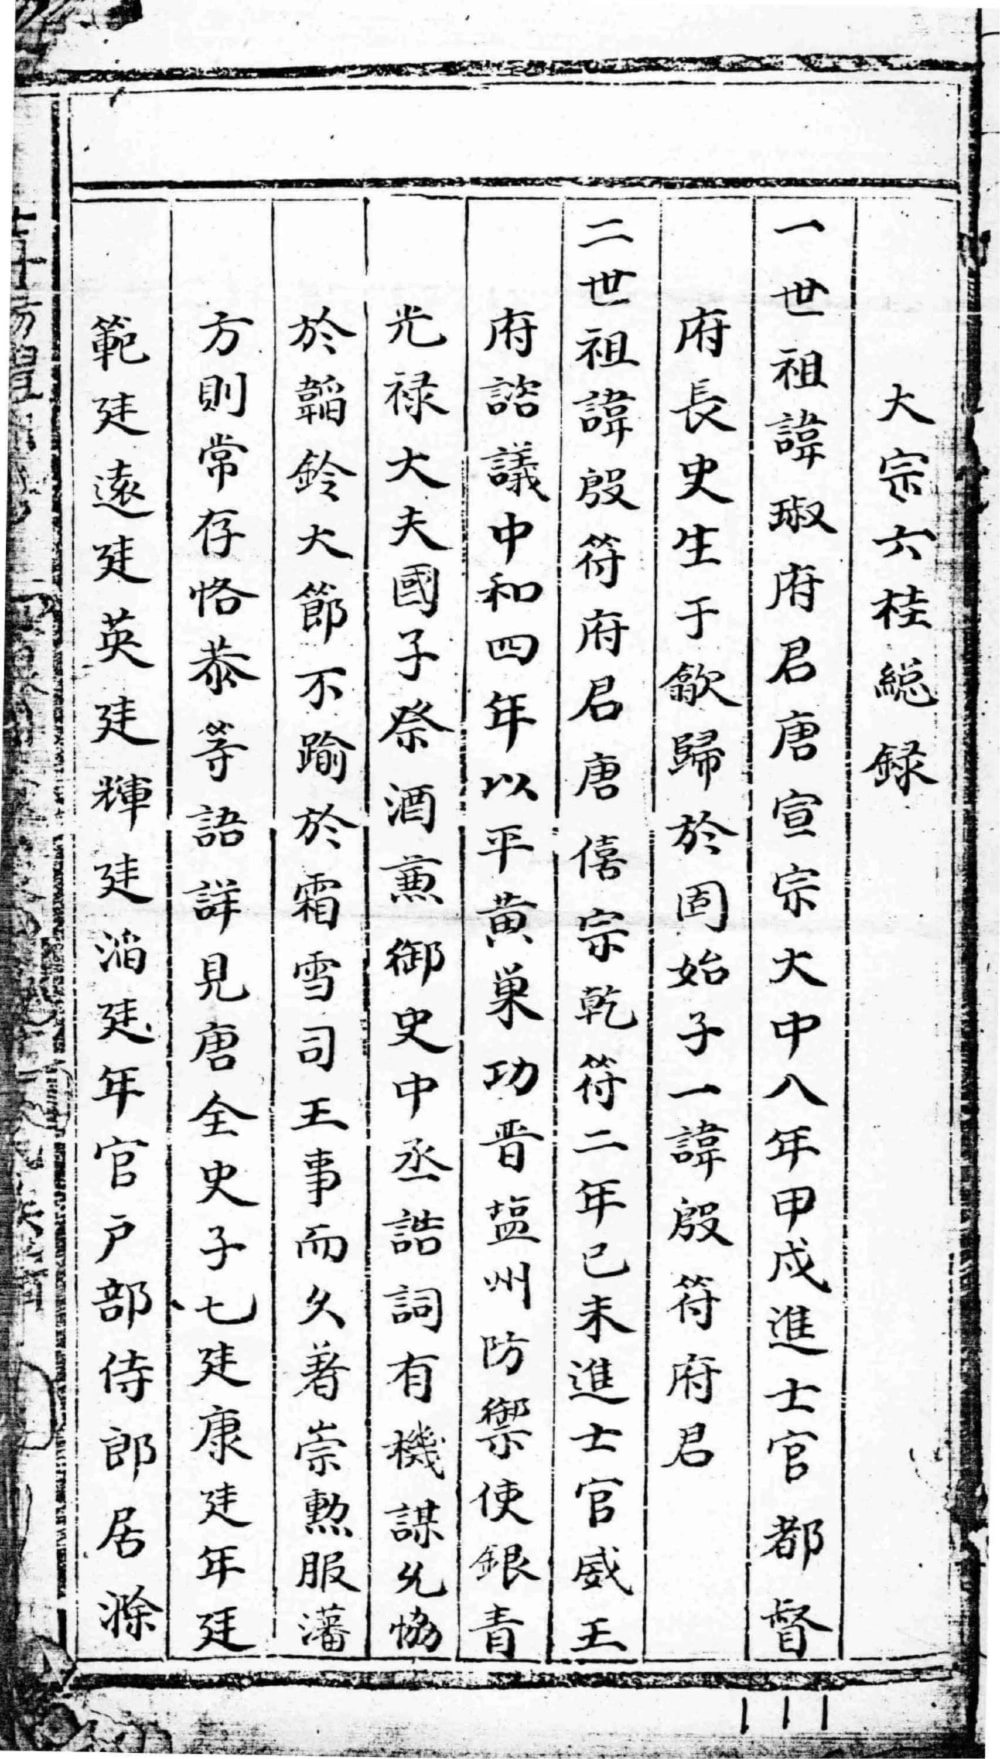 大宗六桂総録
一世祖諱琡府君唐宣宗大中八年甲戍進士官都督
府長史生于歙歸於固始子一諱殷符府君
二世祖諱殷符府君唐僖宗乾符二年已未進士官威王
府諮議中和四年以平黄巢功晋塩州防禦使銀青
光禄大夫國子祭酒兼御史中丞誥詞有機謀允恊
於韜鈴大節不踰於霜雪司王事而久著崇勲服藩
方則常存恪恭等語詳見唐全史子七廷康廷年廷
範廷遠廷英廷輝廷滔廷年官户部侍郎居滁